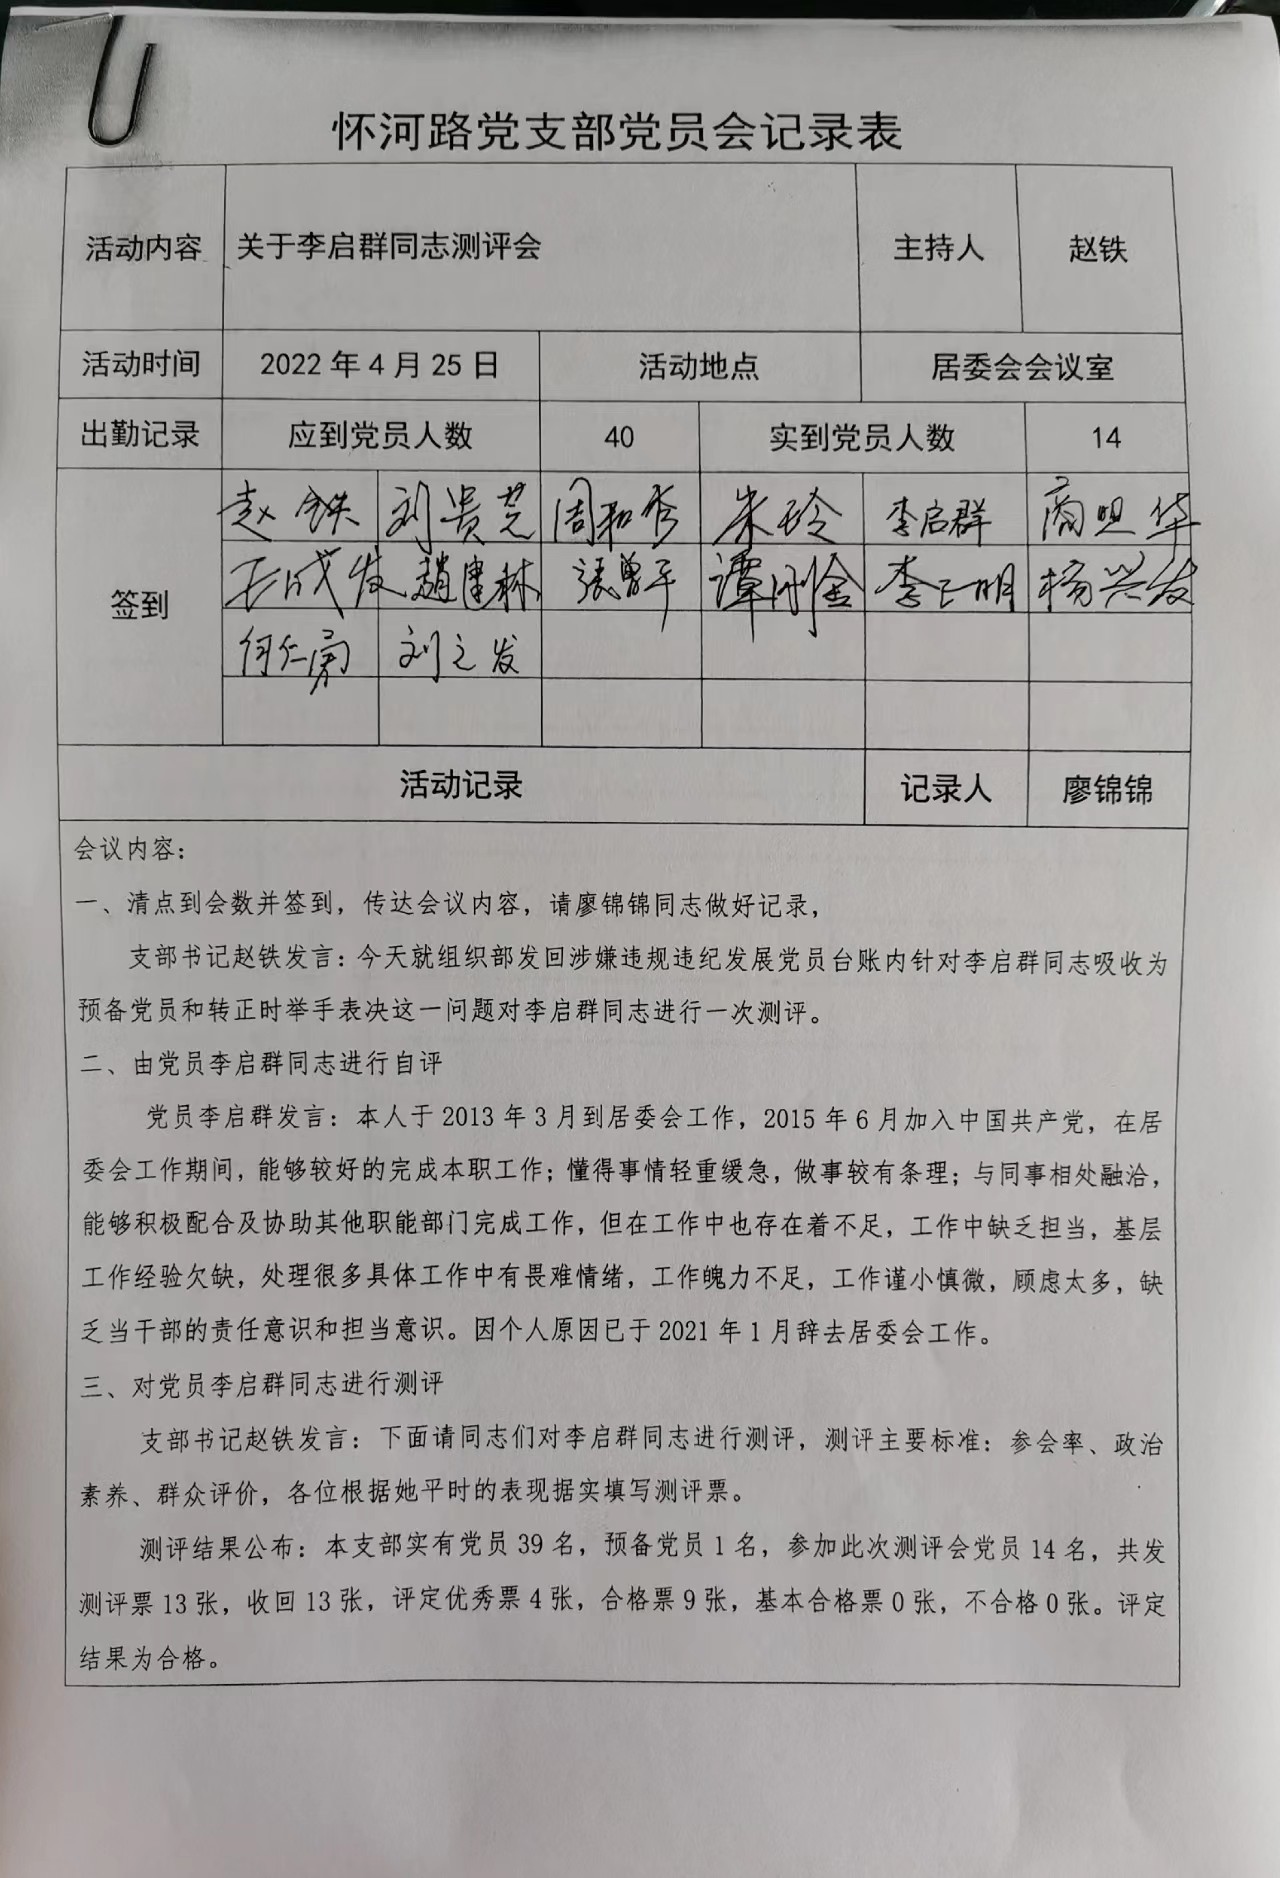 怀河路党支部党员会记录表
活动内容 关于李启群同志测评会 主持人 赵铁
活动时间 2022年4月25日 活动地点 居委会会议室
出勤记录 应到党员人数 40 实到党员人数 14
签到
赵铁 刘贵芸 周和秀 朱玲 李启群
王成发 趙建林 張曾平 谭刚金 李正明 杨兴发
何仁勇 刘之发
活动记录 记录人 廖锦锦
会议内容：
一、清点到会数并签到，传达会议内容，请廖锦锦同志做好记录，
支部书记赵铁发言：今天就组织部发回涉嫌违规违纪发展党员台账内针对李启群同志吸收为
预备党员和转正时举手表决这一问题对李启群同志进行一次测评。
二、由党员李启群同志进行自评
党员李启群发言：本人于2013年3月到居委会工作，2015年6月加入中国共产党，在居
委会工作期间，能够较好的完成本职工作；懂得事情轻重缓急，做事较有条理；与同事相处融洽，
能够积极配合及协助其他职能部门完成工作，但在工作中也存在着不足，工作中缺乏担当，基层
工作经验欠缺，处理很多具体工作中有畏难情绪，工作魄力不足，工作谨小慎微，顾虑太多，缺
乏当干部的责任意识和担当意识。因个人原因已于2021年1月辞去居委会工作。
三、对党员李启群同志进行测评
支部书记赵铁发言：下面请同志们对李启群同志进行测评，测评主要标准：参会率、政治
素养、群众评价，各位根据她平时的表现据实填写测评票。
测评结果公布：本支部实有党员39名，预备党员1名，参加此次测评会党员14名，共发
测评票13张，收回13张，评定优秀票4张，合格票9张，基本合格票0张，不合格0张。评定
结果为合格。